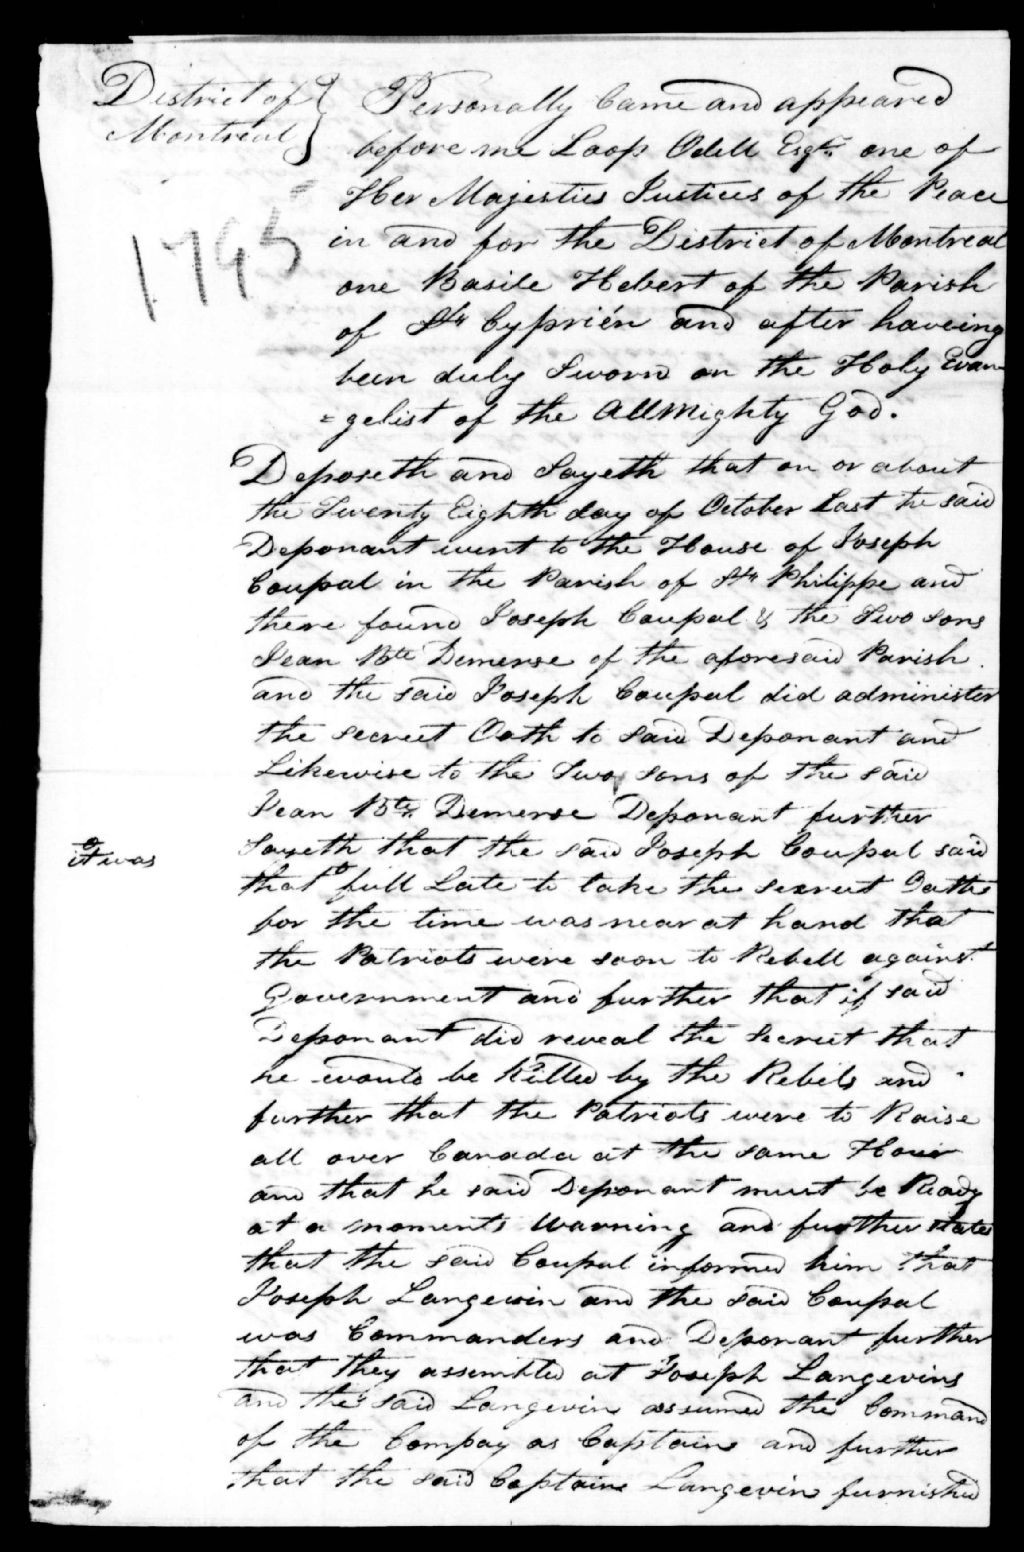 District of } Personally Came and appeared
Montreal } before me Loop Odell Esqr. one of
Her Majesties Justices of the Peace
1795
in and for the District of Montreal
one Basile Hebert of the Parish
of Ste Cyprién and after haveing
been duly Sworn on the Holy Evan
=gelist of the Allmighty God.
Deposeth and Sayeth that on or about
the Twenty Eighth day of October Last he said
Deponant went to the House of Joseph
Coupal in the Parish of Ste Philippe and
there found Joseph Coupal & the Two sons
Jean Bte Demerse of the aforesaid Parish
and the said Joseph Coupal did administer
the secreet Oath to said Deponant and
Likewise to the Two sons of the said
Jean Bte. Demerse Deponant further
Sayeth that the said Joseph Coupal said
it was
that full Late to take the secreet Oathe
for the time was near at hand that
the Patriots were soon to Rebell against
Government and further that if said
Deponant did reveal the Secreet that
he would be Killed by the Rebels and
further that the Patriots were to Raise
all over Canada at the same Hour
and that he said Deponant must be Ready
at a moments Warning and further states
that the said Coupal informed him that
Joseph Langevin and the said Coupal
was Commanders and Deponant further
that they assembled at Joseph Langevins
and the said Langevin assumed the Command
of the Compay as Captain and further
that the said Captain Langevin furnished